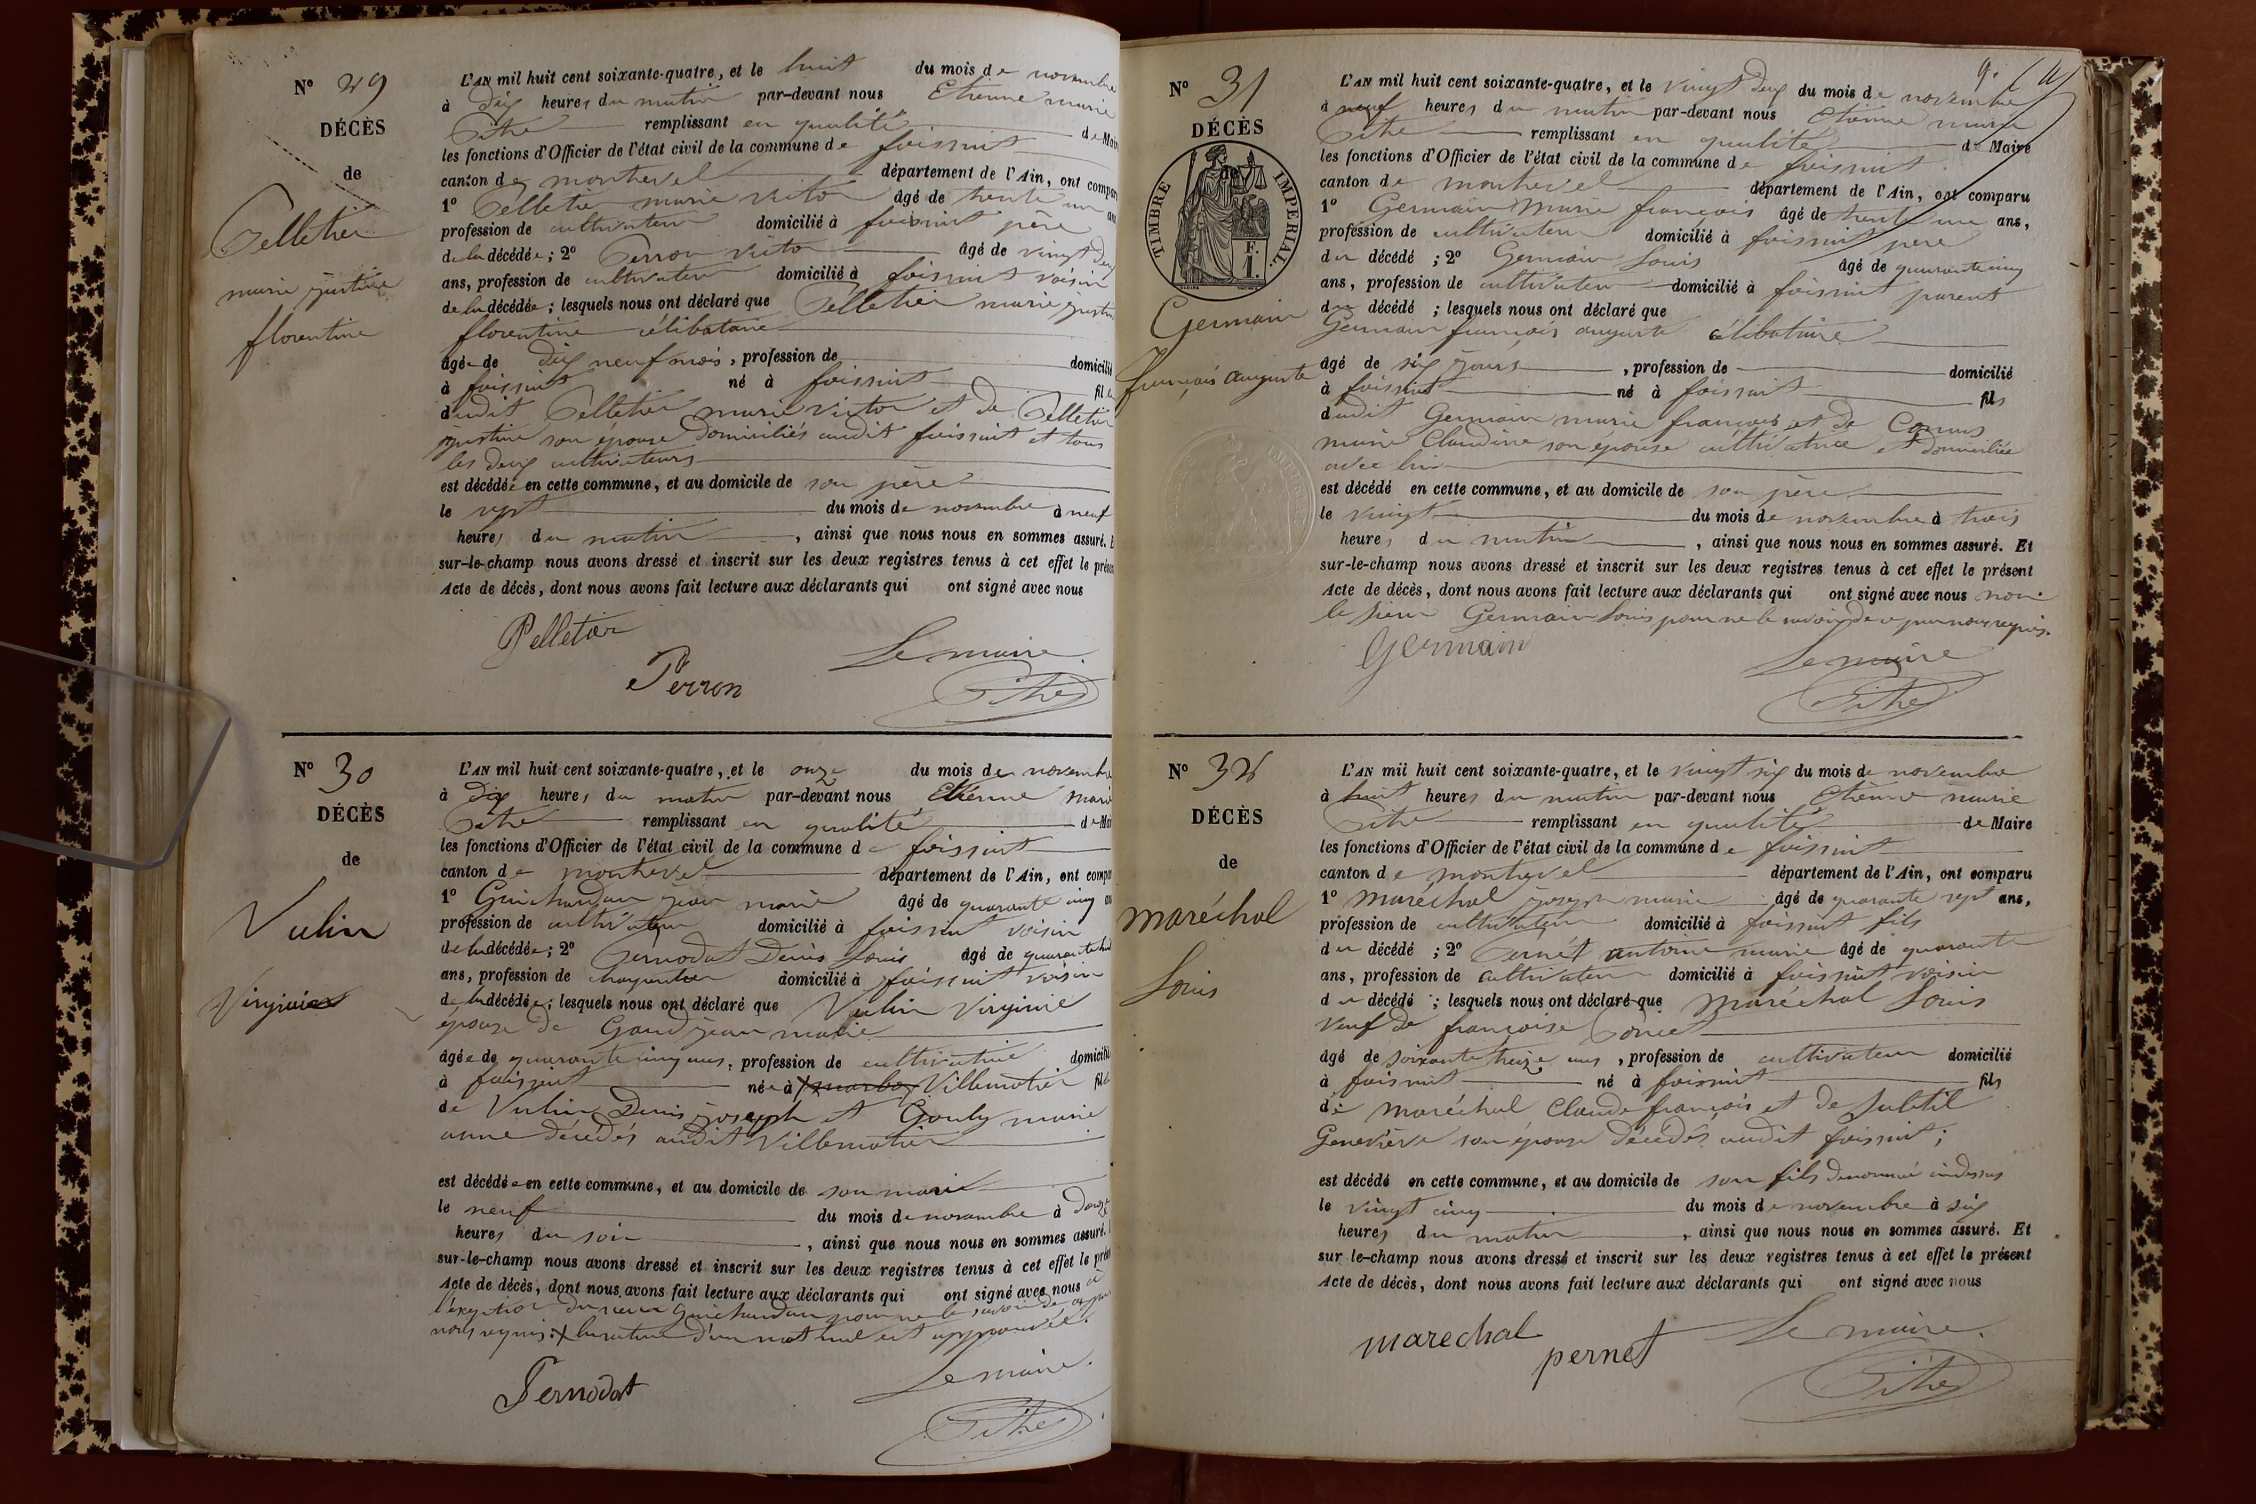 N° 29
DÉCÈS
de
Pelletier
marie justine
florentine
L'AN mil huit cent soixante-quatre, et le huit du mois de novembre
à Dix heures du matin par-devant nous Etienne marie
Pithe remplissant en qualité de Mai
les fonctions d'Officier de l'état civil de la commune de foissiat
canton de montrevel département de l'Ain, ont compar
1° Pelletier marie victor âgé de trente un an
profession de cultivateur domicilié à foissiat père
de la décédée ; 2° Perron victor âgé de vingt deux
ans, profession de cultivateur domicilié à foissiat voisin
de la décédée ; lesquels nous ont déclaré que Pelletier marie justine
florentine célibataire
âgée de dix neuf mois, profession de domicilié
à foissiat né à foissiat fil
dudit Pelletier marie victor et de Pelletier
justine son épouse domiciliés audit foissiat et tous
les deux cultivateurs
est décédée en cette commune, et au domicile de son père
le sept du mois de novembre à neuf
heures du matin, ainsi que nous nous en sommes assuré. E
sur-le-champ nous avons dressé et inscrit sur les deux registres tenus à cet effet le présen
Acte de décès, dont nous avons fait lecture aux déclarants qui ont signé avec nous
Pelletier
Perron
Le maire
Pithe
N° 30
DÉCÈS
de
Vulin
Virginie
L'AN mil huit cent soixante-quatre, et le onze du mois de novembre
à dix heures du matin par-devant nous Etienne marie
Pithe remplissant en qualité de Mai
les fonctions d'Officier de l'état civil de la commune de foissiat
canton de montrevel département de l'Ain, ont compar
1° Guichardan jean marie âgé de quarante cinq an
profession de cultivateur domicilié à foissiat voisin
de la décédée ; 2° Pernodat Denis Louis âgé de quarante huit
ans, profession de charpentier domicilié à foissiat voisin
de la décédée ; lesquels nous ont déclaré que Vulin Virginie
épouse de Gaud jean marie
âgée de quarante cinq ans, profession de cultivatrice domicilié
à foissiat née à marboz Villemotier fil
de Vulin Denis joseph et Gouly marie
anne décédés audit Villemotier
est décédée en cette commune, et au domicile de son marie
le neuf du mois de novembre à Douze
heures du soir, ainsi que nous nous en sommes assuré.
sur-le-champ nous avons dressé et inscrit sur les deux registres tenus à cet effet le prése
Acte de décès, dont nous avons fait lecture aux déclarants qui ont signé avec nous à
l'exception du sieur Guichardan pour ne le savoir de ce par
nous requis. + la rature d'un mot nul est approuvée.
Pernodat
Le maire
Pithe
9.
N° 31
DÉCÈS
de
TIMBRE IMPERIAL.
F.
1.
Germain
françois auguste
L'AN mil huit cent soixante-quatre, et le vingt deux du mois de novembre
à neuf heures du matin par-devant nous Etienne marie
Pithe remplissant en qualité de Maire
les fonctions d'Officier de l'état civil de la commune de foissiat
canton de montrevel département de l'Ain, ont comparu
1° Germain Marie françois âgé de trente un ans,
profession de cultivateur domicilié à foissiat père
du décédé ; 2° Germain Louis âgé de quarante cinq
ans, profession de cultivateur domicilié à foissiat parent
du décédé ; lesquels nous ont déclaré que
Germain françois auguste célibataire
âgé de six jours, profession de domicilié
à foissiat né à foissiat fils
dudit Germain marie françois et de Connus
marie Claudine son épouse cultivatrice et domiciliée
avec lui
est décédé en cette commune, et au domicile de son père
le vingt du mois de novembre à trois
heures du matin, ainsi que nous nous en sommes assuré. Et
sur-le-champ nous avons dressé et inscrit sur les deux registres tenus à cet effet le présent
Acte de décès, dont nous avons fait lecture aux déclarants qui ont signé avec nous non
le sieur Germain Louis pour ne le savoir de ce par nous requis.
Germain
Le maire
Pithe
N° 32
DÉCÈS
de
maréchal
Louis
L'AN mil huit cent soixante-quatre, et le vingt six du mois de novembre
à huit heures du matin par-devant nous Etienne marie
Pithe remplissant en qualité de Maire
les fonctions d'Officier de l'état civil de la commune de foissiat
canton de montrevel département de l'Ain, ont comparu
1° maréchal joseph marie âgé de quarante sept ans,
profession de cultivateur domicilié à foissiat fils
du décédé ; 2° Pernet antoine marie âgé de quarante
ans, profession de cultivateur domicilié à foissiat voisin
du décédé ; lesquels nous ont déclaré que maréchal Louis
veuf de françoise
âgé de soixante treize ans, profession de cultivateur domicilié
à foissiat né à foissiat fils
de maréchal Claude françois et de Subtil
Geneviève son épouse décédés audit foissiat ;
est décédé en cette commune, et au domicile de son fils denommé cidessus
le vingt cinq du mois de novembre à six
heures du matin, ainsi que nous nous en sommes assuré. Et
sur le-champ nous avons dressé et inscrit sur les deux registres tenus à cet effet le présent
Acte de décès, dont nous avons fait lecture aux déclarants qui ont signé avec nous
marechal
pernet
Le maire
Pithe